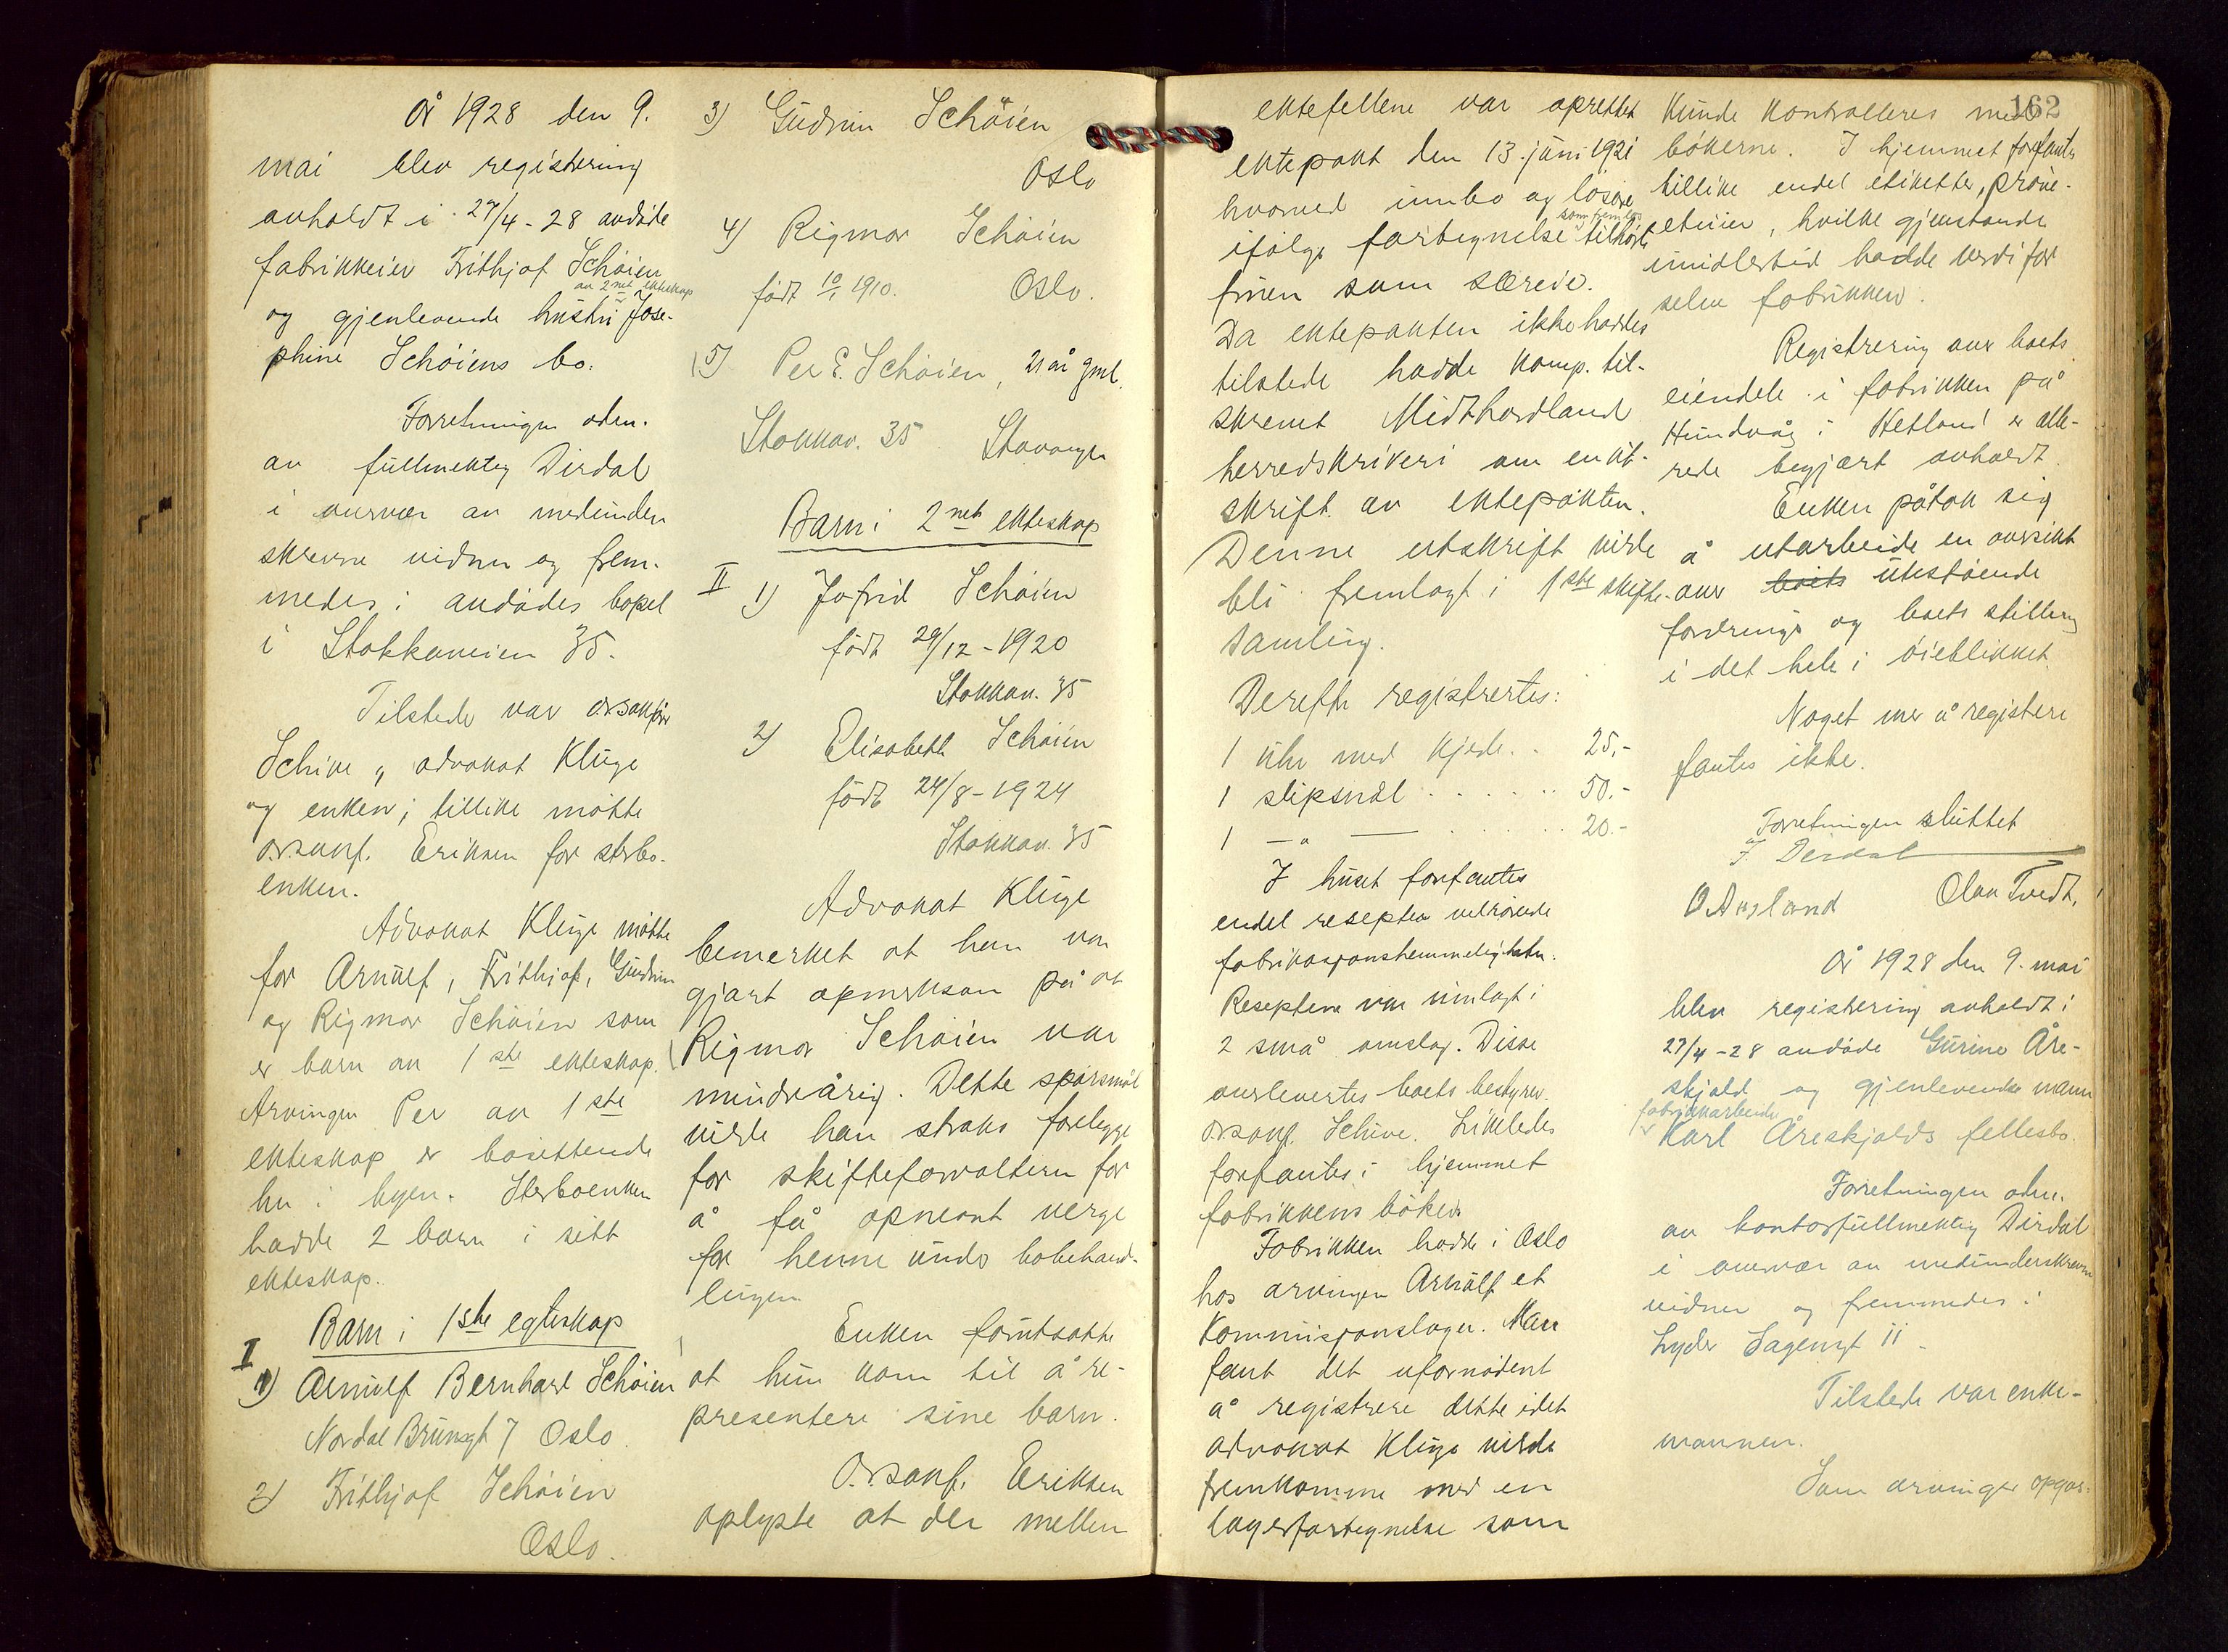 År 1928 den 9.
mai blev registrering
avholdt i 27/4-28 avdøde
fabrikkeier Frithjof Schöien
av 2net ekteskap
og gjenlevende hustru Jose-
phine Schöiens bo.
Forretningen adm.
av fullmektig Dirdal
i overvær av medunder
skrevne vidner og frem-
medes i avdødes bopel
i Stokkaveien 35.
Tilstede var o.r.sakfører
Schive, advokat Kluge
og enken; tillike møtte
o.r.sakf. Eriksen for sterbo-
enken.
Advokat Kluge møtte
for Arnulf, Frithjof, Gudrun
og Rigmor Schöien som
er barn av 1ste ekteskap.
Arvingen Per av 1ste
ekteskap er bosittende
her i byen. Sterboenken
hadde 2 barn i sitt
ekteskap.
I Barn i 1ste egteskap
1) Arnulf Bernhard Schöien
Nordal Brunsgt 7 Oslo
2) Frithjof Schöien
Oslo.
3) Gudrun Schöien
Oslo
4) Rigmor Schöien
født 10/1 1910. Oslo.
5) Per E. Schöien, 21 år gml.
Stokkav. 35 Stavanger
Barn i 2net ekteskap
II 1) Jofrid Schöien
født 29/12-1920
Stokkav. 35
2) Elisabeth Schöien
født 24/8-1924
Stokkav. 35
Advokat Kluge
bemerket at han var
gjort opmerksom på at
Rigmor Schöien var
mindreårig. Dette spørsmål
vilde han straks forelegge
for skifteforvalteren for
å få opnevnt verge
for henne under bobehand-
lingen
Enken forutsatte
at hun kom til å re-
presentere sine barn.
O.r.sakf. Eriksen
oplyste at der mellem
162
ektefellene var oprettet
ektepakt den 13. juni 1921
hvorved innbo og løsøre
som fremlas
ifølge fortegnelse tilhørte
fruen som særeie.
Da ektepakten ikke haddes
tilstede hadde komp. til-
skrevet Midthordland
herredskriveri om en ut-
skrift av ektepakten.
Denne utskrift vilde
bli fremlagt i 1ste skifte-
samling.
Derefter registrertes:
1 uhr med kjede . . 25,-
1 slipsnål . . . . . . 50.-
1 -"- . . . . . . 20.-
I huset forfantes
endel resepter vedrørende
fabrikasjonshemmeligheter.
Reseptene var innlagt i
2 små omslag. Disse
overlevertes boets bestyrer
o.r.sakf. Schive. Likeledes
forfantes i hjemmet
fabrikkens bøker.
Fabrikken hadde i Oslo
hos arvingen Arnulf et
kommisjonslager. Man
fant det ufornødent
å registrere dette idet
advokat Kluge vilde
fremkomme med en
lagerfortegnelse som
kunde kontrolleres med
bøkerne. I hjemmet forfantes
tillike endel etiketter, prøve-
etuier, hvilke gjenstande
imidlertid hadde verdi for
selve fabrikken.
Registrering over boets
eiendele i fabrikken på
Hundvåg i Hetland er alle-
rede begjært avholdt
Enken påtok sig
å utarbeide en oversikt
over boets utestående
fordringer og boets stilling
i det hele i øieblikket.
Noget mer å registrere
fantes ikke.
Forretningen sluttet
J. Dirdal
O Ausland Olav Tvedt.
År 1928 den 9. mai
blev registrering avholdt i
27/4-28 avdøde Gurine Åre-
skjold og gjenlevende mann
fabrikkarbeider
Karl Åreskjolds fellesbo.
Forretningen adm.
av kontorfullmektig Dirdal
i overvær av medunderskrevne
vidner og fremmedes i
Lyder Sagensgt 11.
Tilstede var enke-
mannen.
Som arvinger opgav-